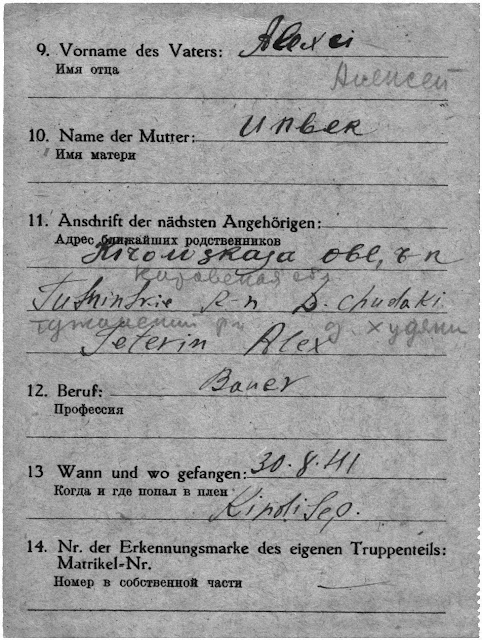 9. Vorname des Vaters: Alexei
Имя отца
Алексей
10. Name der Mutter: unbek
Имя матери
11. Anschrift der nächsten Angehörigen:
Адрес ближайших родственников
obl,
Кировская обл
R-n D. Chudaki
р-н д.
Seterin Alex
12. Beruf: Bauer
Профессия
13 Wann und wo gefangen: 30.8.41
Когда и где попал в плен
Kindisep.
14. Nr. der Erkennungsmarke des eigenen Truppenteils:
Matrikel-Nr.
Номер в собственной части